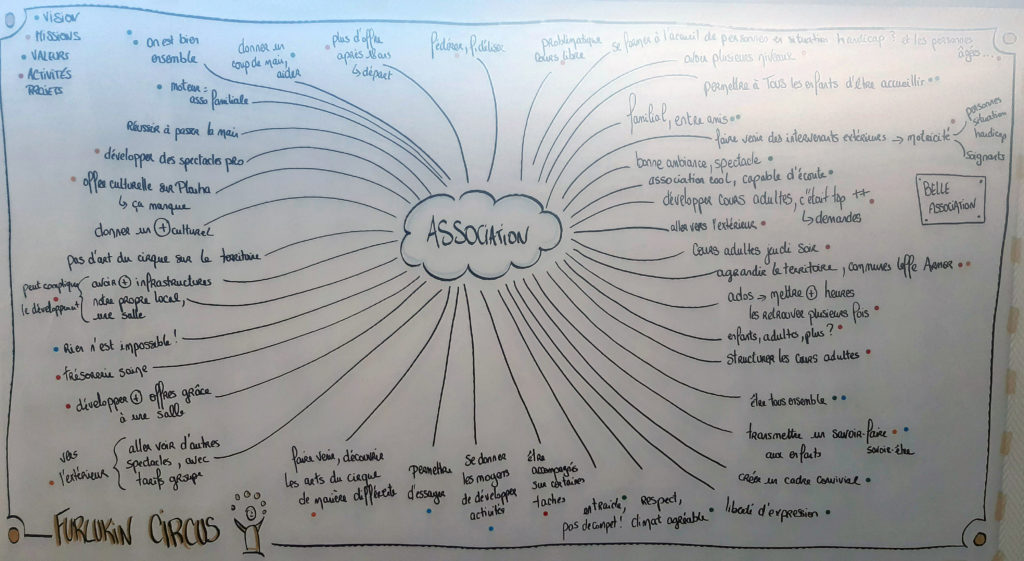 VISION
MISSIONS
VALEURS
ACTIVITÉS
PROJETS
on est bien
ensemble
donner un
coup de main,
aider
plus d'offre
↳ départ
fédérer, fidéliser
problématique
cours libre
se former à l'accueil de personnes en situation handicap ? et les personnes
âgées...
avoir plusieurs niveaux
permettre à TOUS les enfants d'être accueillir
moteur =
asso familiale
familial, entre amis
Réussir à passer la main
faire venir des intervenants extérieurs → motricité
personnes
situation
handicap
Soignants
développer des spectacles pro
bonne ambiance, spectacle
association cool, capable d'écoute
offre culturelle sur
↳ ça manque
développer cours adultes, c'était top ++
↳ demandes
BELLE
ASSOCIATION
ASSOCIATION
donner un + culturel
aller vers l'extérieur
pas d'art du cirque sur le territoire
cours adultes jeudi soir
agrandir le territoire, communes Leffe Armor
peut compliquer
le développement
avoir + infrastructures
notre propre local,
une salle
ados → mettre + heures
les retrouver plusieurs fois
Rien n'est impossible !
enfants, adultes, plus ?
structurer les cours adultes
trésorerie saine
développer + offres grâce
à une salle
être tous ensemble
transmettre un savoir-faire
savoir-être
aux enfants
vers
l'extérieur
aller voir d'autres
spectacles, avec
tarifs groupe
faire venir, découvrir
les arts du cirque
de manière différente
permettre
d'essayer
se donner
les moyens
de développer
activités
être
accompagnés
sur certaines
taches
entraide,
pas de compét !
respect,
climat agréable
créer un cadre convivial
liberté d'expression
FURLUKIN CIRCUS